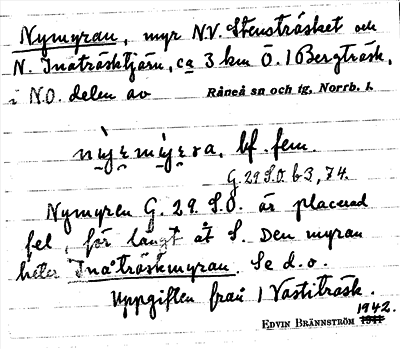 Nymyran, myr N.V. Stensträsket och
N. Inåträsktjärn, ca 3 km Ö. 1 Bergträsk,
i N.O. delen av Råneå sn och tg, Norrb. l.
bf. fem.
G.29 S.O. b3, 74.
Nymyren G. 29. S.O. är placerad
fel, för långt åt S. Den myran
heter Inåträskmyran. Se d.o.
Uppgiften från 1 Vastiträsk.
1942.
EDVIN BRÄNNSTRÖM 1941